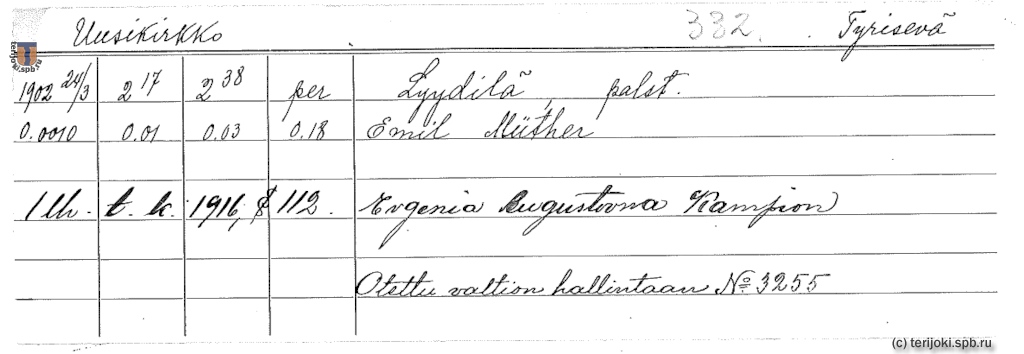 Uusikirkko 332. Tyrisevä
terijoki.spb.ru
1902 24/3 2 17 2 38 per Lyydilä, palst.
0.0010 0.01 0.03 0.18 Emil Müther
1 lh. t. k. 1916, § 112. Evgenia Augustovna Kampion
Otettu valtion hallintaan No 3255
(c) terijoki.spb.ru